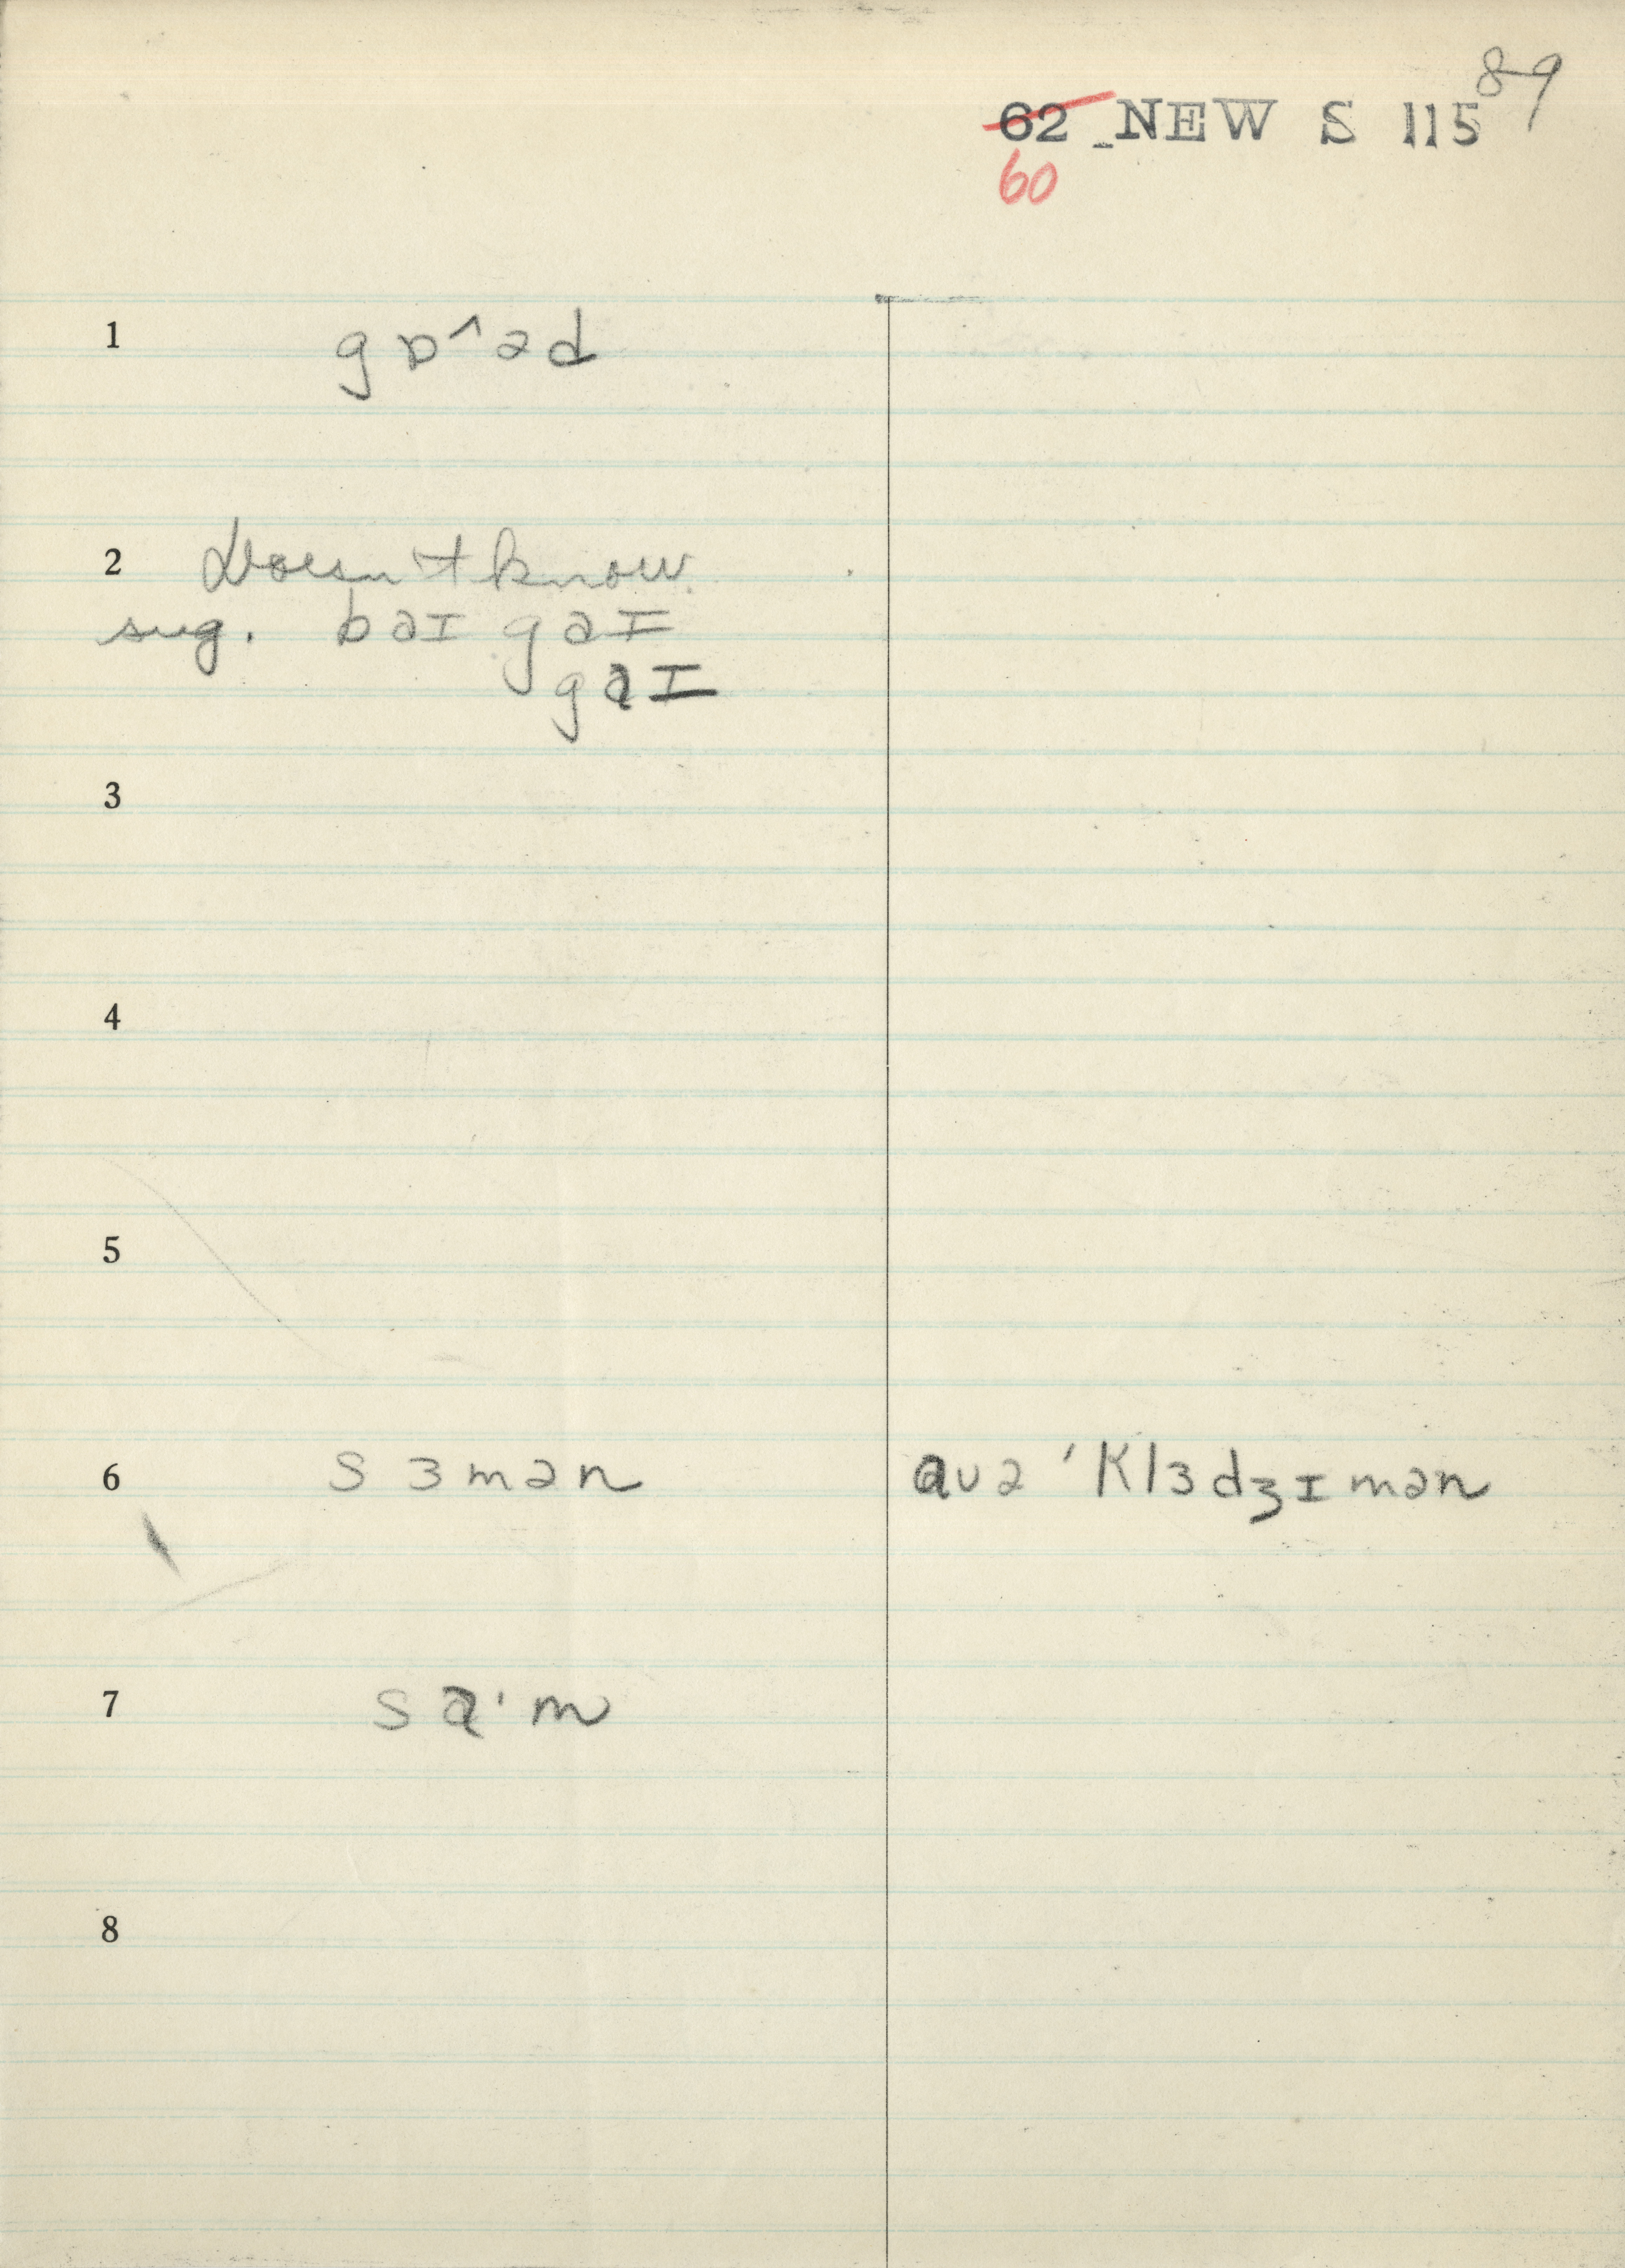 89
62 NEW S 115
60
1 gɒ^əd
2 Doesn't know
sug. bəɪ gəɪ
gaɪ
3
4
5
6 sɜmən avə 'klɜdʒɪmən
7 sɑ'm
8